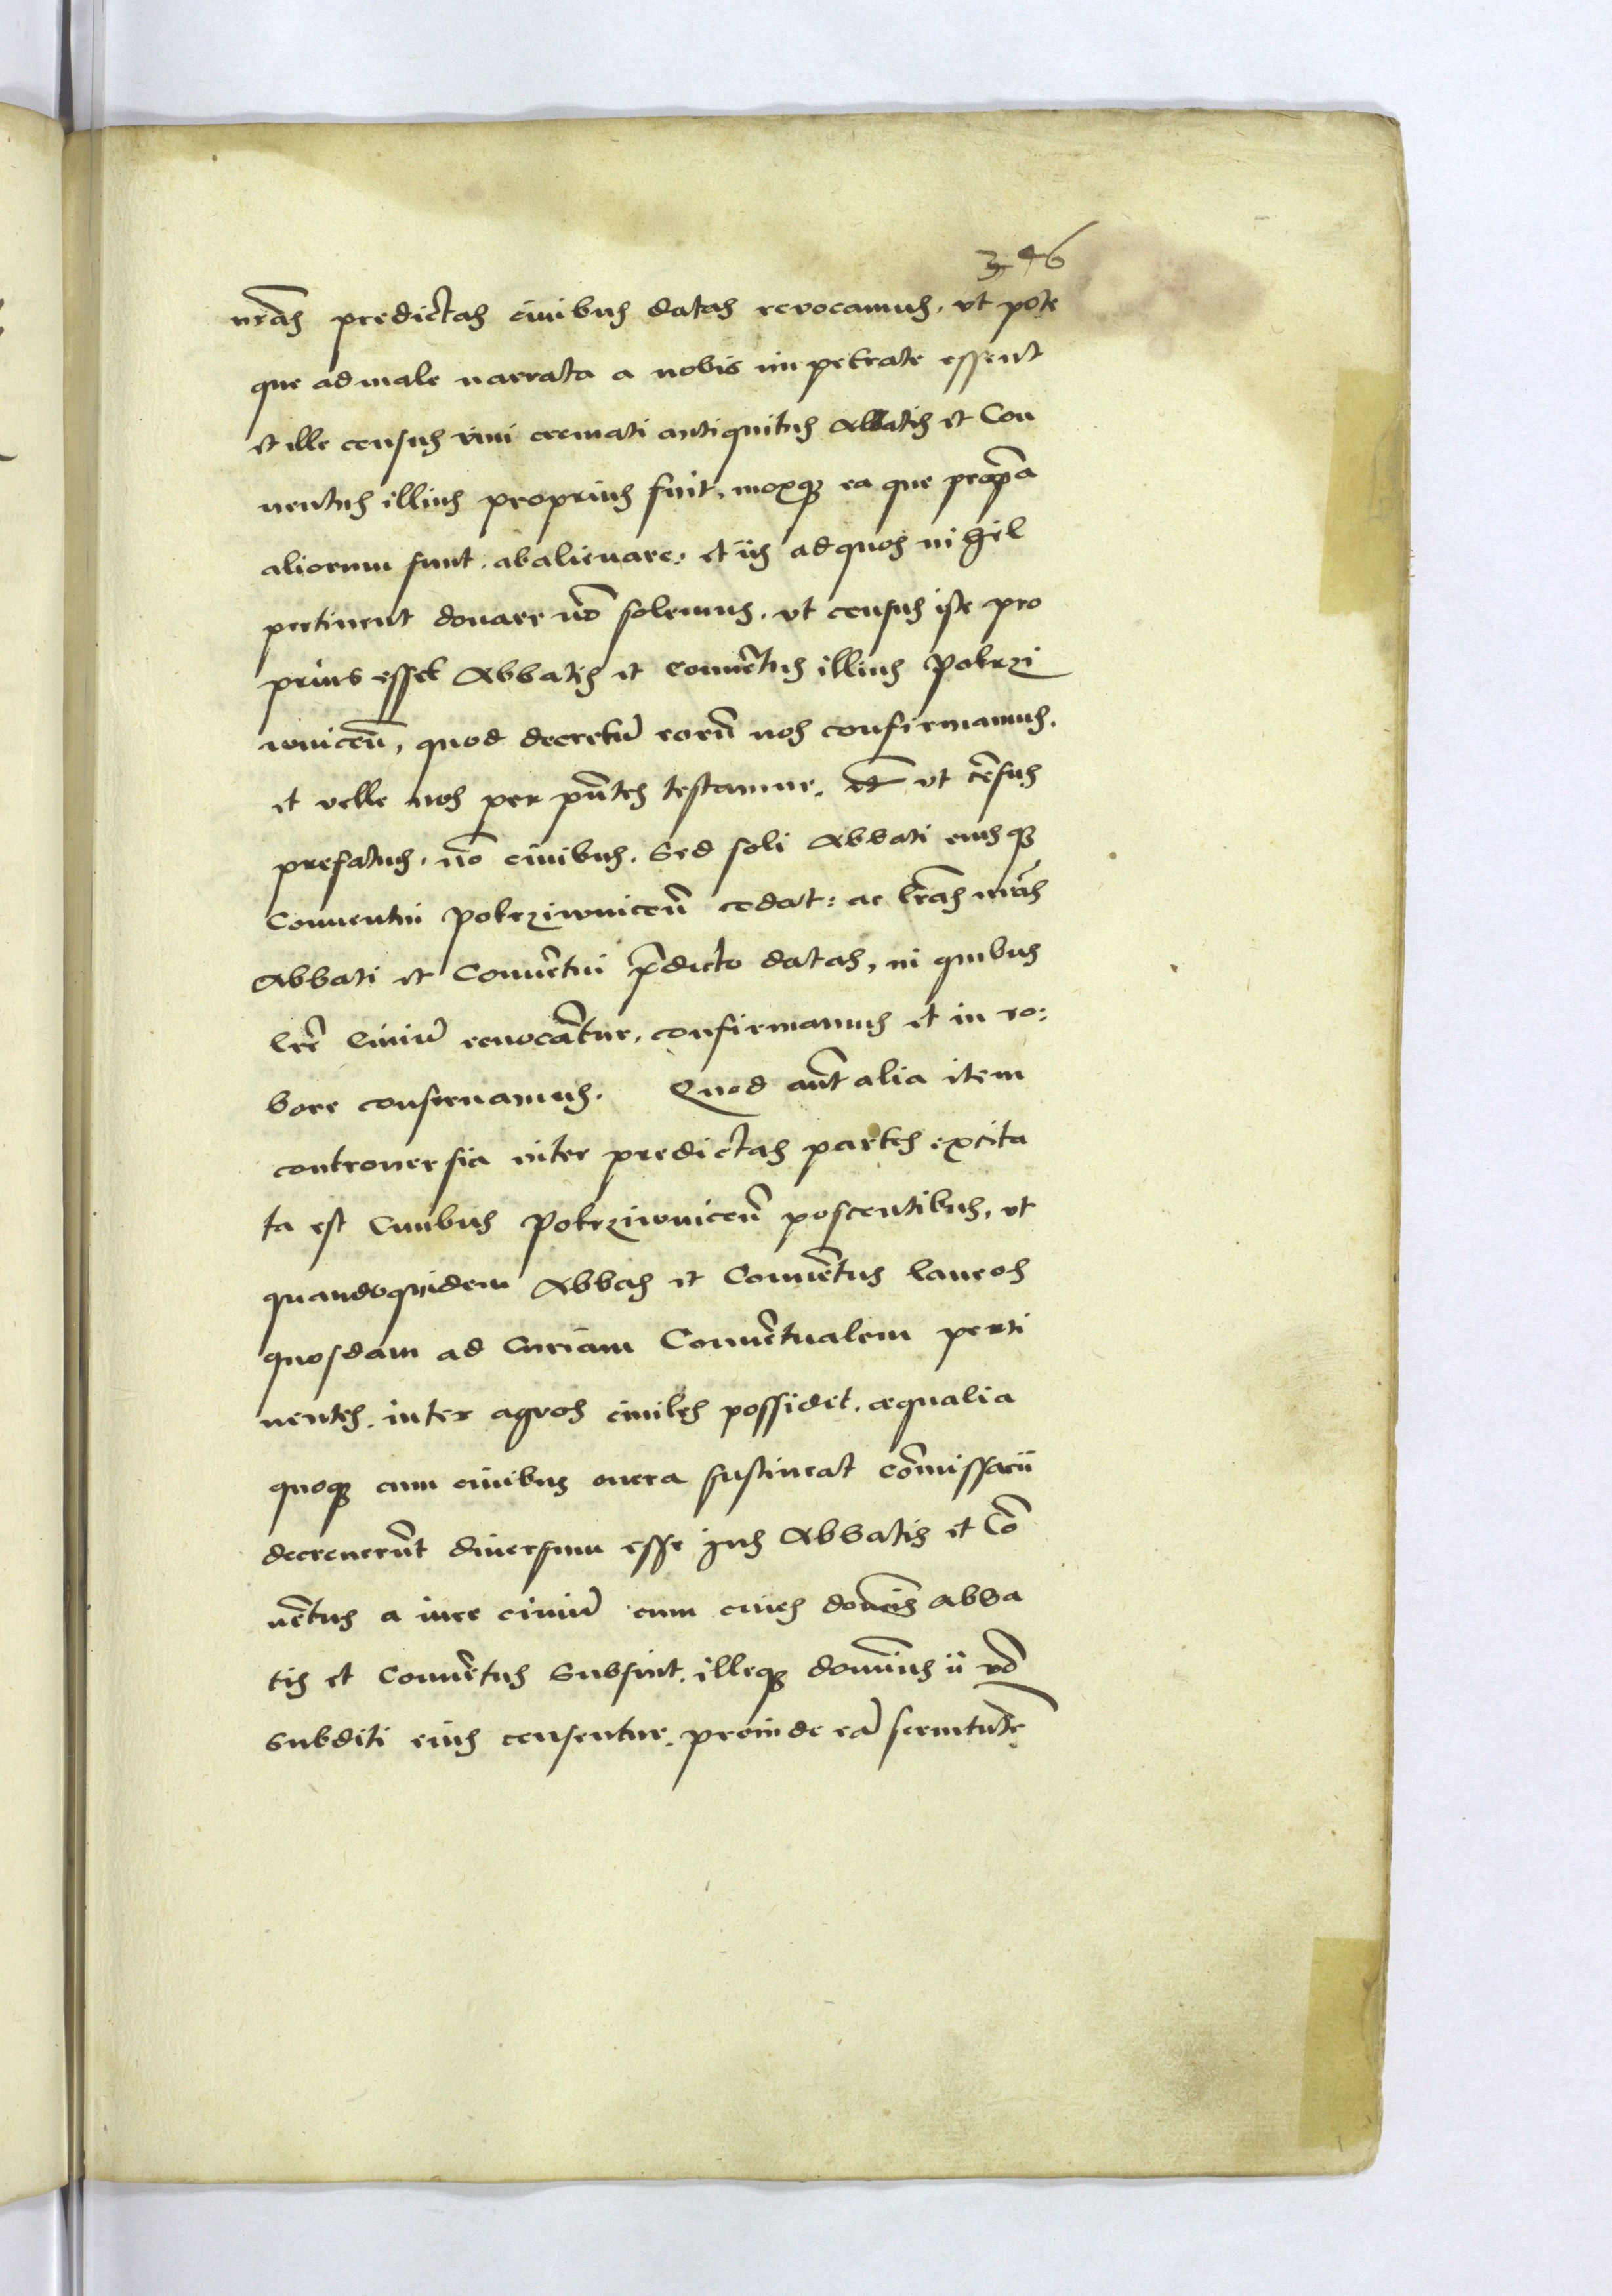 346
nr̄as predictas ciuibus datas revocamus, vt pote
que ad male narrata a nobis impetrate essent
et ille census vini cremati antiquitus Abbatis et Con
uentus illius proprius fuit, moxq; ea que prop̄a
aliorum sunt, abalienare, et iis ad quos nihil
pertinent donare nō solemus, vt census iste pro
prius esset Abbatis et Conuētus illius Pokrzi
wniceñ, quod decretū eorū nos confirmamus,
et velle nos per pn̄tes testamur, vt cēsus
prefatus, nō ciuibus, sed soli Abbati eiusq;
Conuentui Pokrziwniceñ cedat: ac lr̄as nr̄as
Abbati et Conuētui p̄dicto datas, in quibus
lr̄e Ciuiū reuocātur, confirmamus et in ro:
bore conseruamus. Quod aūt alia item
controuersia inter predictas partes excita
ta est Ciuibus Pokrziwniceñ poscentibus, vt
quandoquidem Abbas et Conuētus laneos
quosdam ad Curiam Conuētualem perti
nentes, inter agros ciuiles possidet, æqualia
quoq; cum ciuibus onera sustineat Cōmissarii
decreuerūt diuersum esse ius Abbatis et Cō
uētus a iure ciuiū cum ciues donīis Abba
tis et Conuētus subsint, illeq; domīnus ii v̄o
subditi eius censentur, proinde eā seruitutē